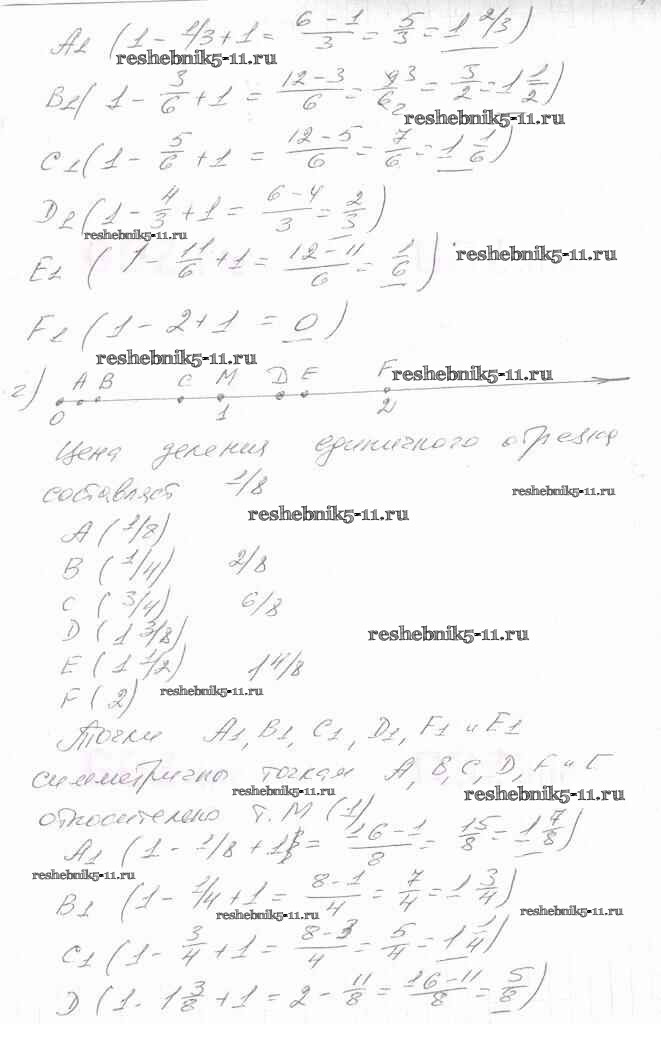 A1 (1 - 1/3 + 1 = 6-1/3 = 5/3 = 1 2/3)
reshebnik5-11.ru
B1 (1 - 3/6 + 1 = 12-3/6 = 9 3/6 2 = 3/2 = 1 1/2)
reshebnik5-11.ru
C1 (1 - 5/6 + 1 = 12-5/6 = 7/6 = 1 1/6)
D1 (1 - 4/3 + 1 = 6-4/3 = 2/3)
reshebnik5-11.ru
E1 (1 - 11/6 + 1 = 12-11/6 = 1/6)
reshebnik5-11.ru
F1 (1 - 2 + 1 = 0)
reshebnik5-11.ru
г) A B C M D E F
reshebnik5-11.ru
0 1 2
Цена деления единичного отрезка
составляет 1/8
reshebnik5-11.ru
reshebnik5-11.ru
A (1/8)
B (1/4) 2/8
C (3/4) 6/8
D (1 3/8)
reshebnik5-11.ru
E (1 1/2) 1 4/8
F (2)
reshebnik5-11.ru
Точки A1, B1, C1, D1, F1 и E1
симметричны точкам A, B, C, D, F и E
reshebnik5-11.ru
reshebnik5-11.ru
относительно т. M (1)
A1 (1 - 1/8 + 1 = 16-1/8 = 15/8 = 1 7/8)
reshebnik5-11.ru
B1 (1 - 1/4 + 1 = 8-1/4 = 7/4 = 1 3/4)
reshebnik5-11.ru
reshebnik5-11.ru
C1 (1 - 3/4 + 1 = 8-3/4 = 5/4 = 1 1/4)
D (1 - 1 3/8 + 1 = 2 - 11/8 = 16-11/8 = 5/8)